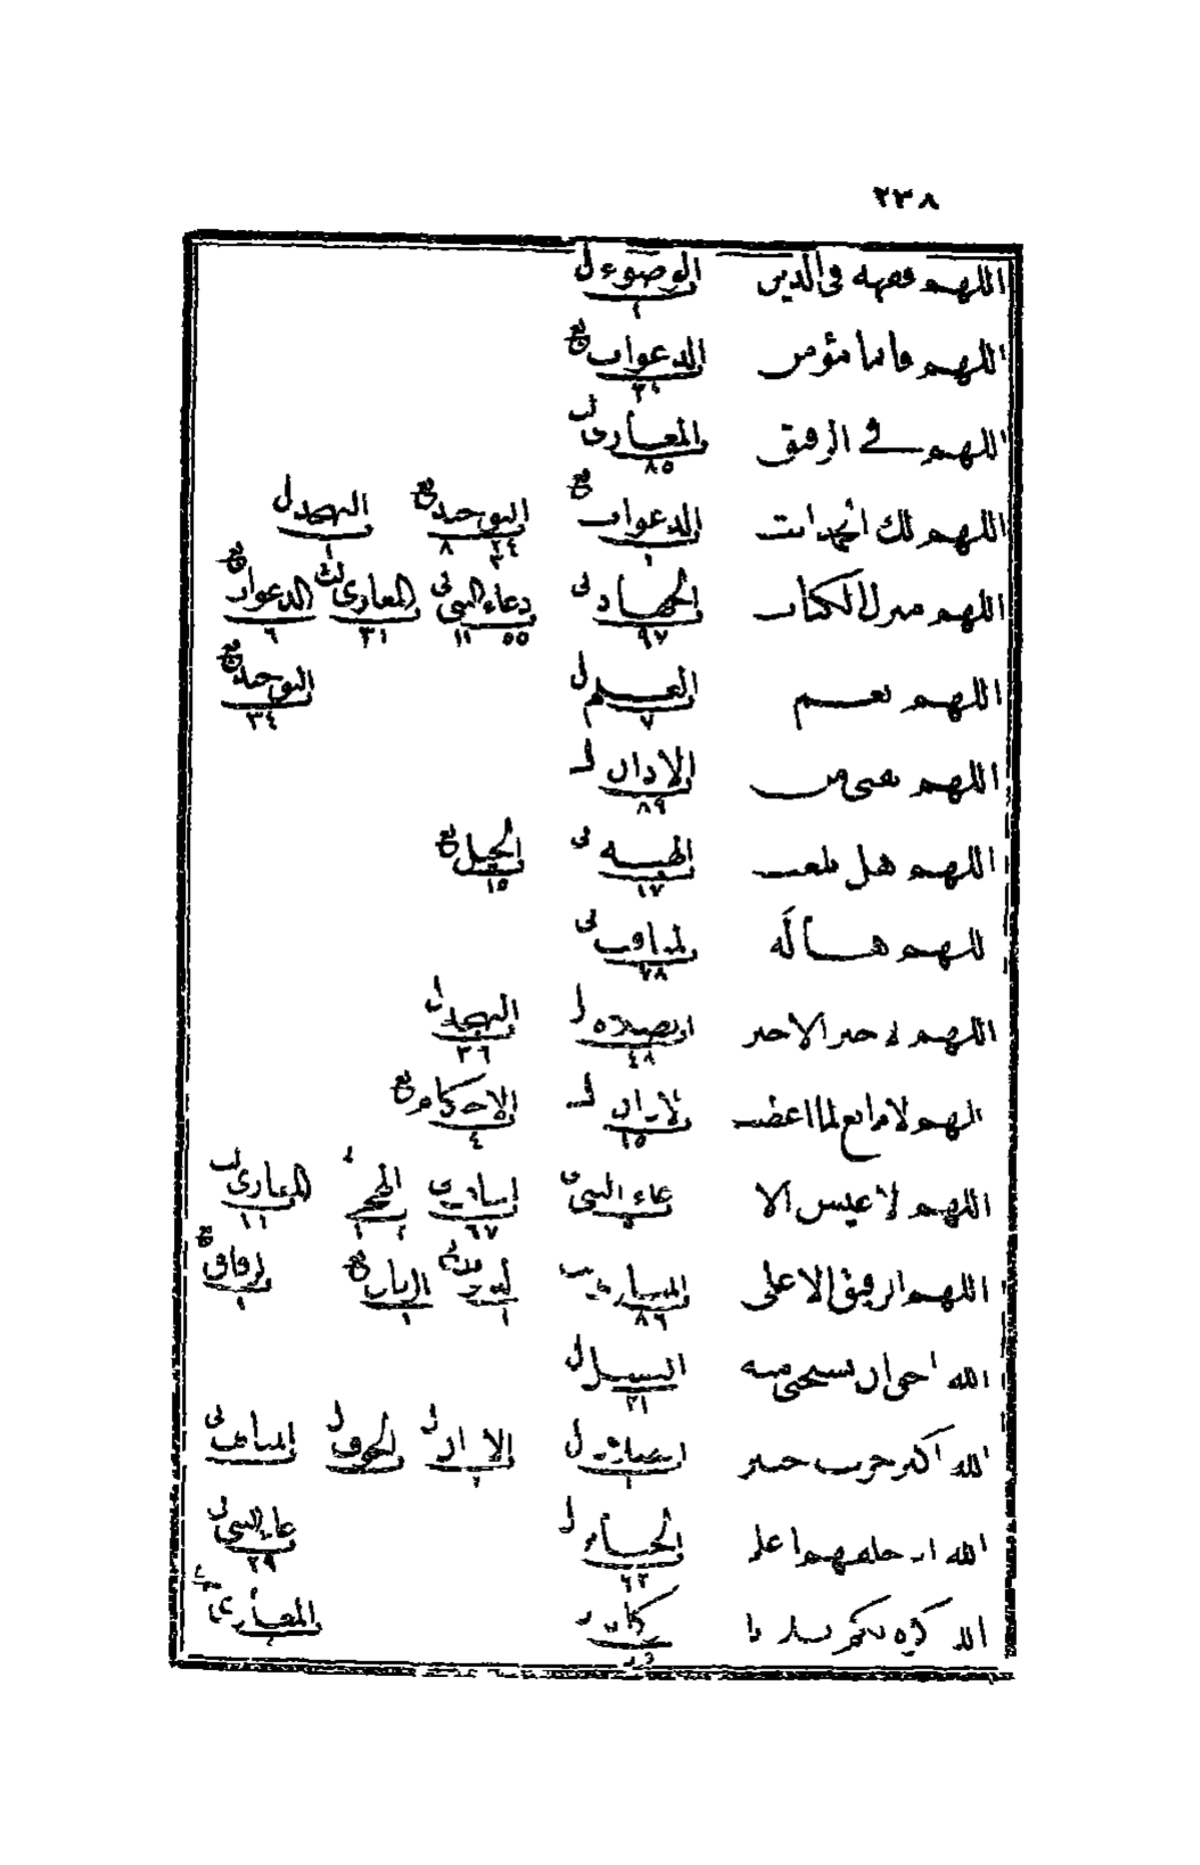 ٢٣٨
اللهم فقهه فى الدين الوضوء ل
اللهم فايما مؤمن الدعوات بع ٣٤
اللهم فى الرفيق المغازى ٨٥
اللهم لك الحمد انت الدعوات بع ٦ التوحيد بع ٢٤ ٨ التهجد ل ١
اللهم منزل الكتاب الجهاد نى ٩٧ دعاء النبى نى ٥٥ ١١ المغازى لث ٣١ الدعوات بع ٦
اللهم نعم العلم ل ٧ التوحيد بع ٣٤
اللهم نقنى من الاذان ل ٨٩
اللهم هل بلغت الهبة نى ١٧ الحيل بع ١٥
اللهم هالة المناقب نى ٧٨
اللهم لا خير الا خير الصلاة ل ٤٨ التهجد ل ٣٦
اللهم لا مانع لما اعطيت الاذان ل ١٥ الاحكام بع ٤
اللهم لا عيش الا دعاء النبى المغازى ١١
اللهم الرفيق الاعلى المغازى ٨٦ اللباس بع ١ الرقاق بع ١
الله احق ان يستحيى منه الغسل ل ٢١
الله اكبر خربت خيبر الصلاة ل الاذان ل ٦ الخوف ل المناقب نى
الله اذ خلقهم اعلم الجنائز ل ٦٢ دعاء النبى نى ٢٩
الله كره لكم الزكاة المغازى